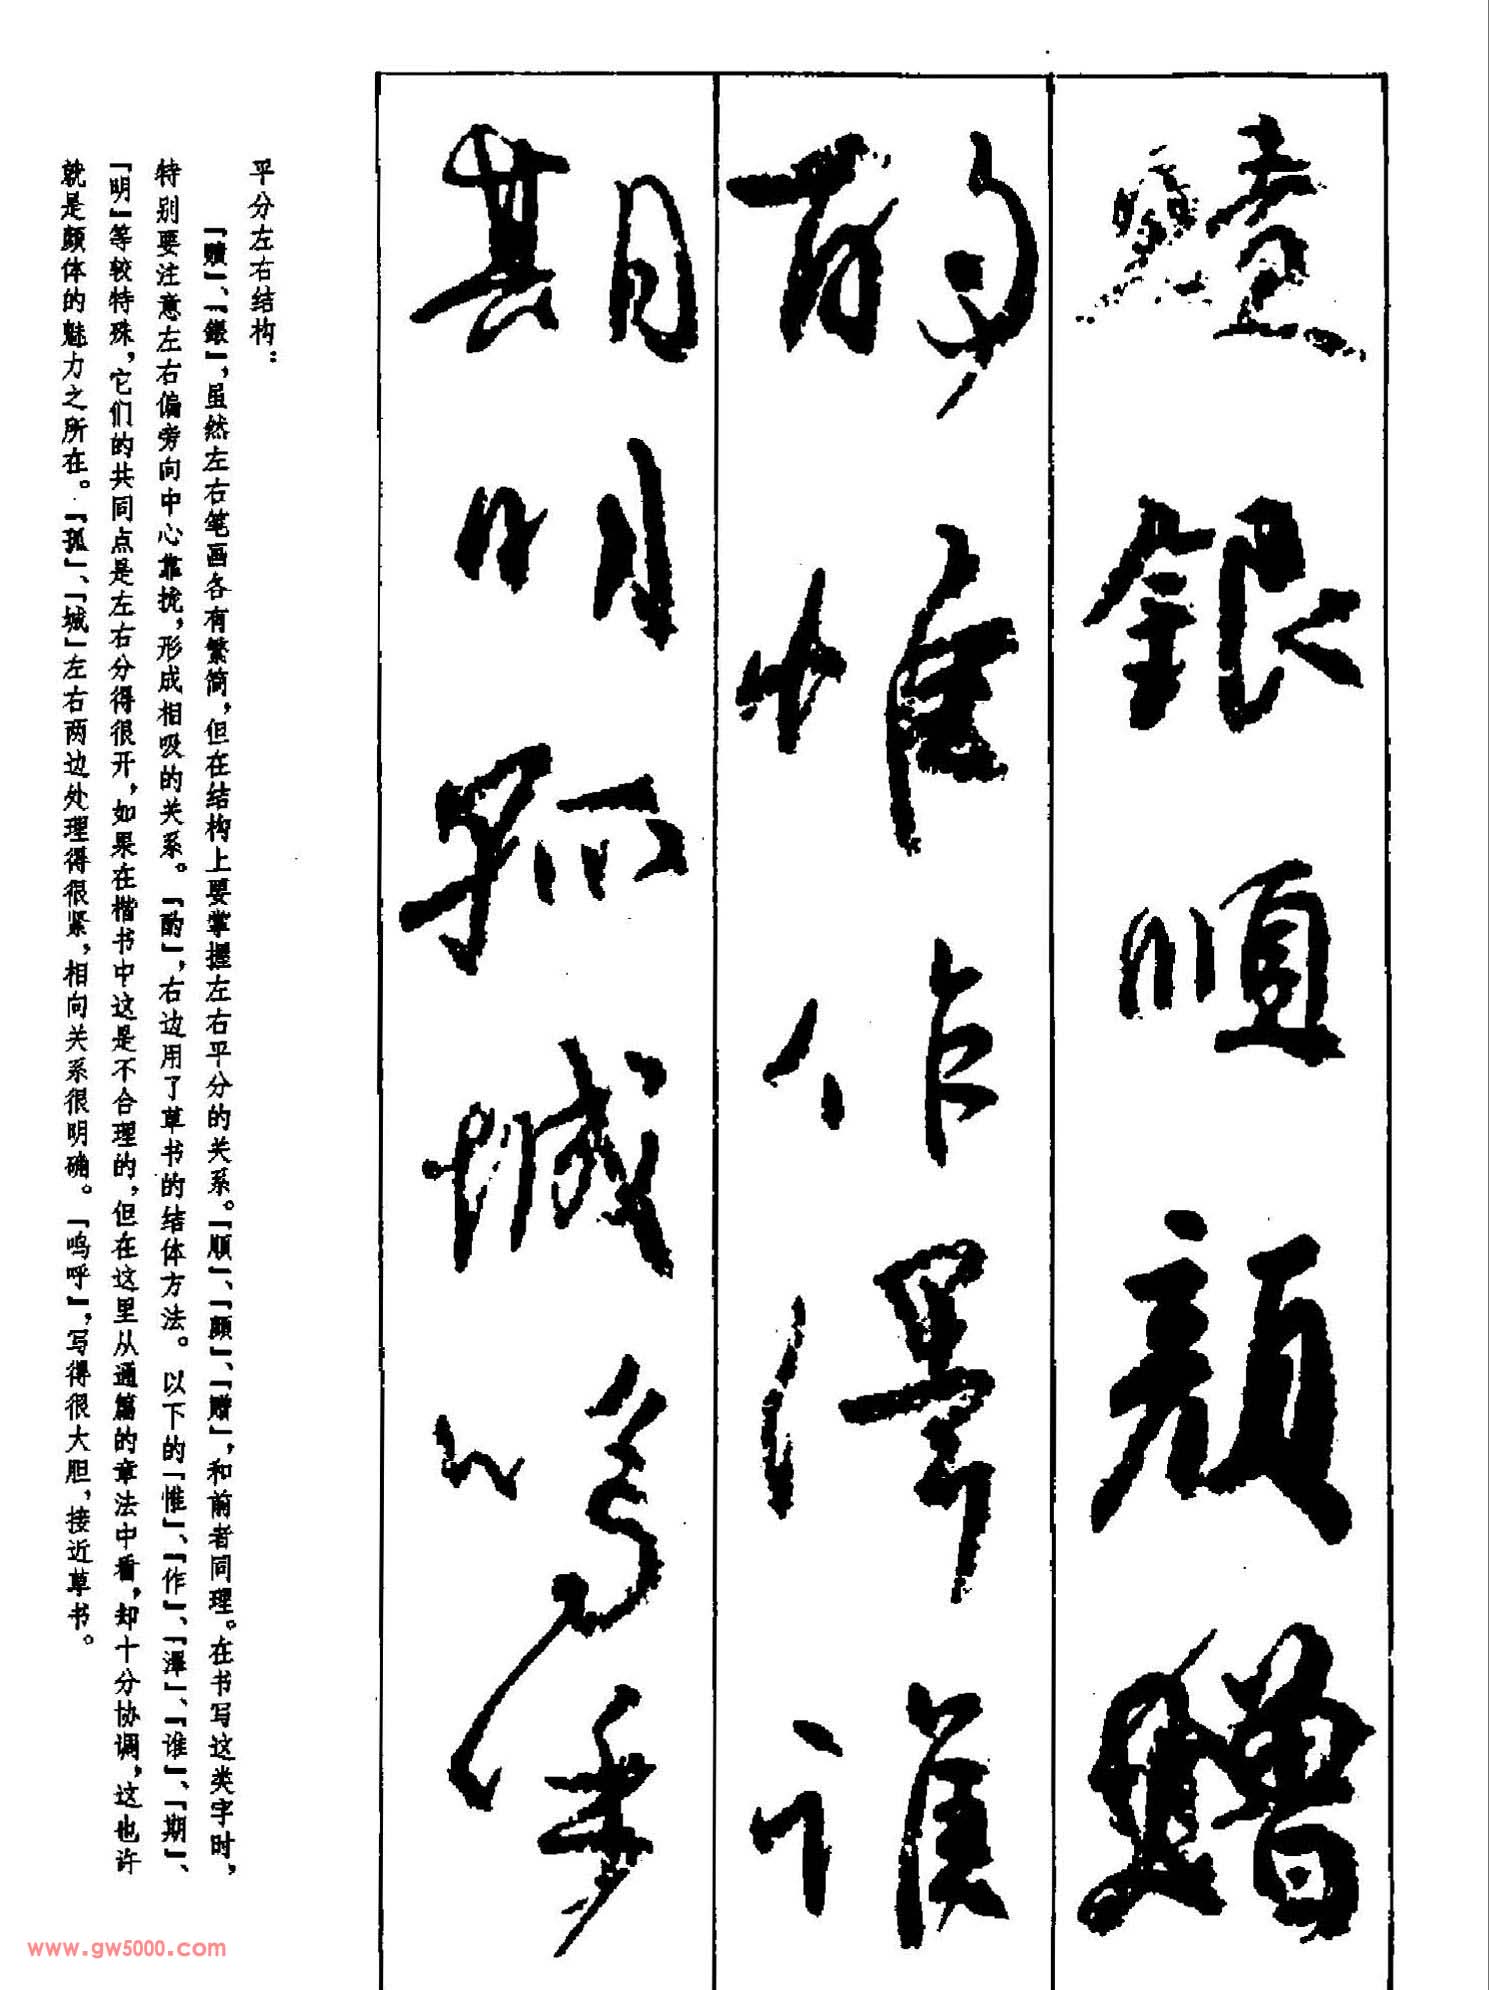 贖銀順顔贈
酌惟作澤誰
期明孤城嗚呼
平分左右结构：
「赎」、「銀」，虽然左右笔画各有繁简，但在结构上要掌握左右平分的关系。「順」、「颜」、「赠」，和前者同理。在书写这类字时，
特别要注意左右偏旁向中心靠拢，形成相吸的关系。「酌」，右边用了草书的结体方法。以下的「惟」、「作」、「澤」、「谁」、「期」、
「明」等较特殊，它们的共同点是左右分得很开，如果在楷书中这是不合理的，但在这里从通篇的章法中看，却十分协调，这也许
就是颜体的魅力之所在。「孤」、「城」左右两边处理得很紧，相向关系很明确。「呜呼」，写得很大胆，接近草书。
www.gw5000.com